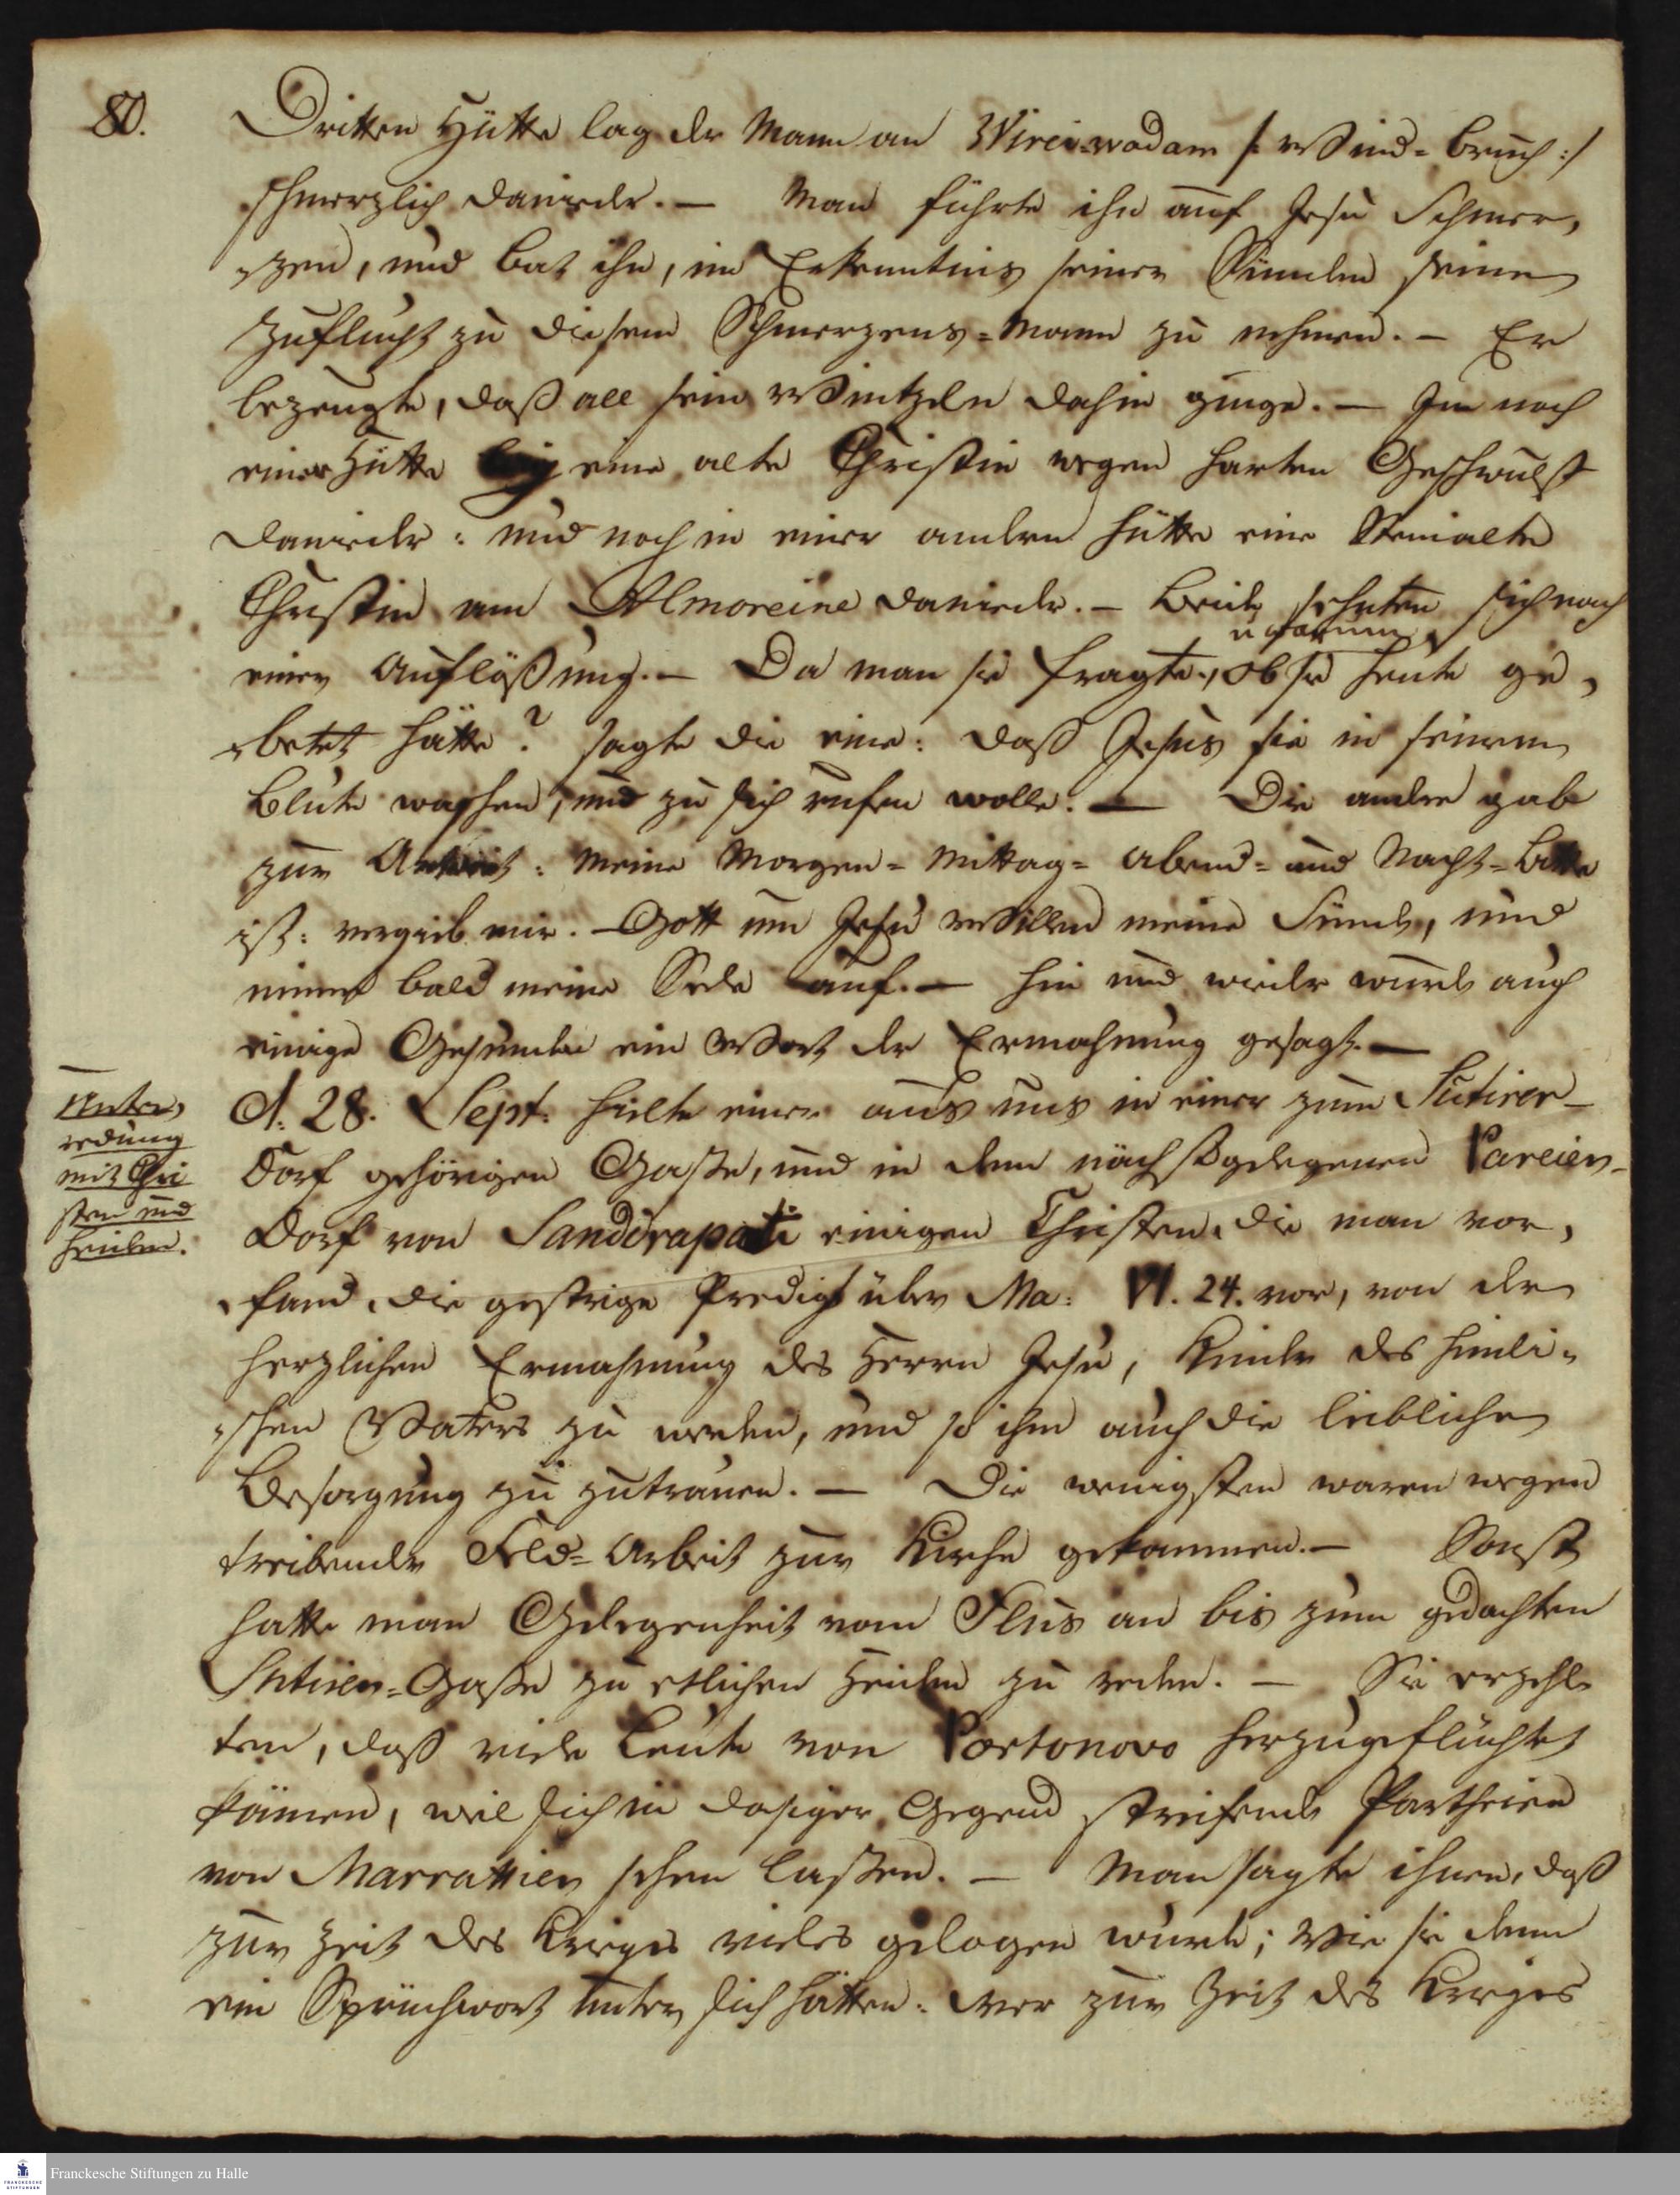 80.
Dritten Hütte lag der Mann an Wirei-wadam /: Wind-bruch :/
schmerzlich danieder. — Man führte ihn auf Jesu Schmer,
,zen, und bat ihn, im Erkenntnis seiner Sünden seine
Zuflucht zu diesem Schmerzens-Mann zu nehmen. — Er
bezeugte, daß all sein Wintzeln dahin ginge. — In noch
einer Hütte lag eine alte Christin wegen harten Geschwulst
danieder: und noch in einer andern Hütte eine Steinalte
Christin am Almoreine danieder. — Beide sehnten sich nach
einer Auflößung. — Da man sie fragte, ob sie heute ge,
u. warum
,betet hätte? sagte die eine: daß Jesus sie in seinem
Blute waschen, und zu sich rufen wolle. — Die andre gab
zur Antwort: Meine Morgen- Mittag- Abend- und Nacht-Bitte
ist: vergieb mir. — Gott um Jesu Willen meine Sünde, und
nimm bald meine Sele auf. — Hin und wieder wurde auch
einige Gesunden ein Wort der Ermahnung gesagt. —
Unter,
redung
mit Chri
sten und
Heiden.
d. 28. Sept: hielte einer aus uns in einer zum Sutirer-
Dorf gehörigen Gaße, und in dem nächstgelegenen Pareier-
Dorf von Sandirapati einigen Christen, die man vor,
,fand, die gestrige Predigt über Ma: VI. 24. vor, von der
herzlichen Ermahnung des Herrn Jesu, Kinder des himli-
,schen Vaters zu werden, und so ihm auch die leibliche
Besorgung zu zutrauen. — Die wenigsten waren wegen
treibender Feld-Arbeit zur Kirche gekommen. — Sonst
hatte man Gelegenheit vom Flus an bis zum gedachten
Sutirer-Gaße zu etlichen Heiden zu reden. — Sie erzehl-
ten, daß viele Leute von Portonovo herzugeflüchtet
kämen, weil sich in dasiger Gegend streifende Partheien
von Marrattier sehen laßen. — Man sagte ihnen, daß
zur Zeit des Krieges vieles gelogen würde; Wie sie denn
ein Sprüchwort unter sich hätten: Wer zur Zeit des Krieges
Franckesche Stiftungen zu Halle